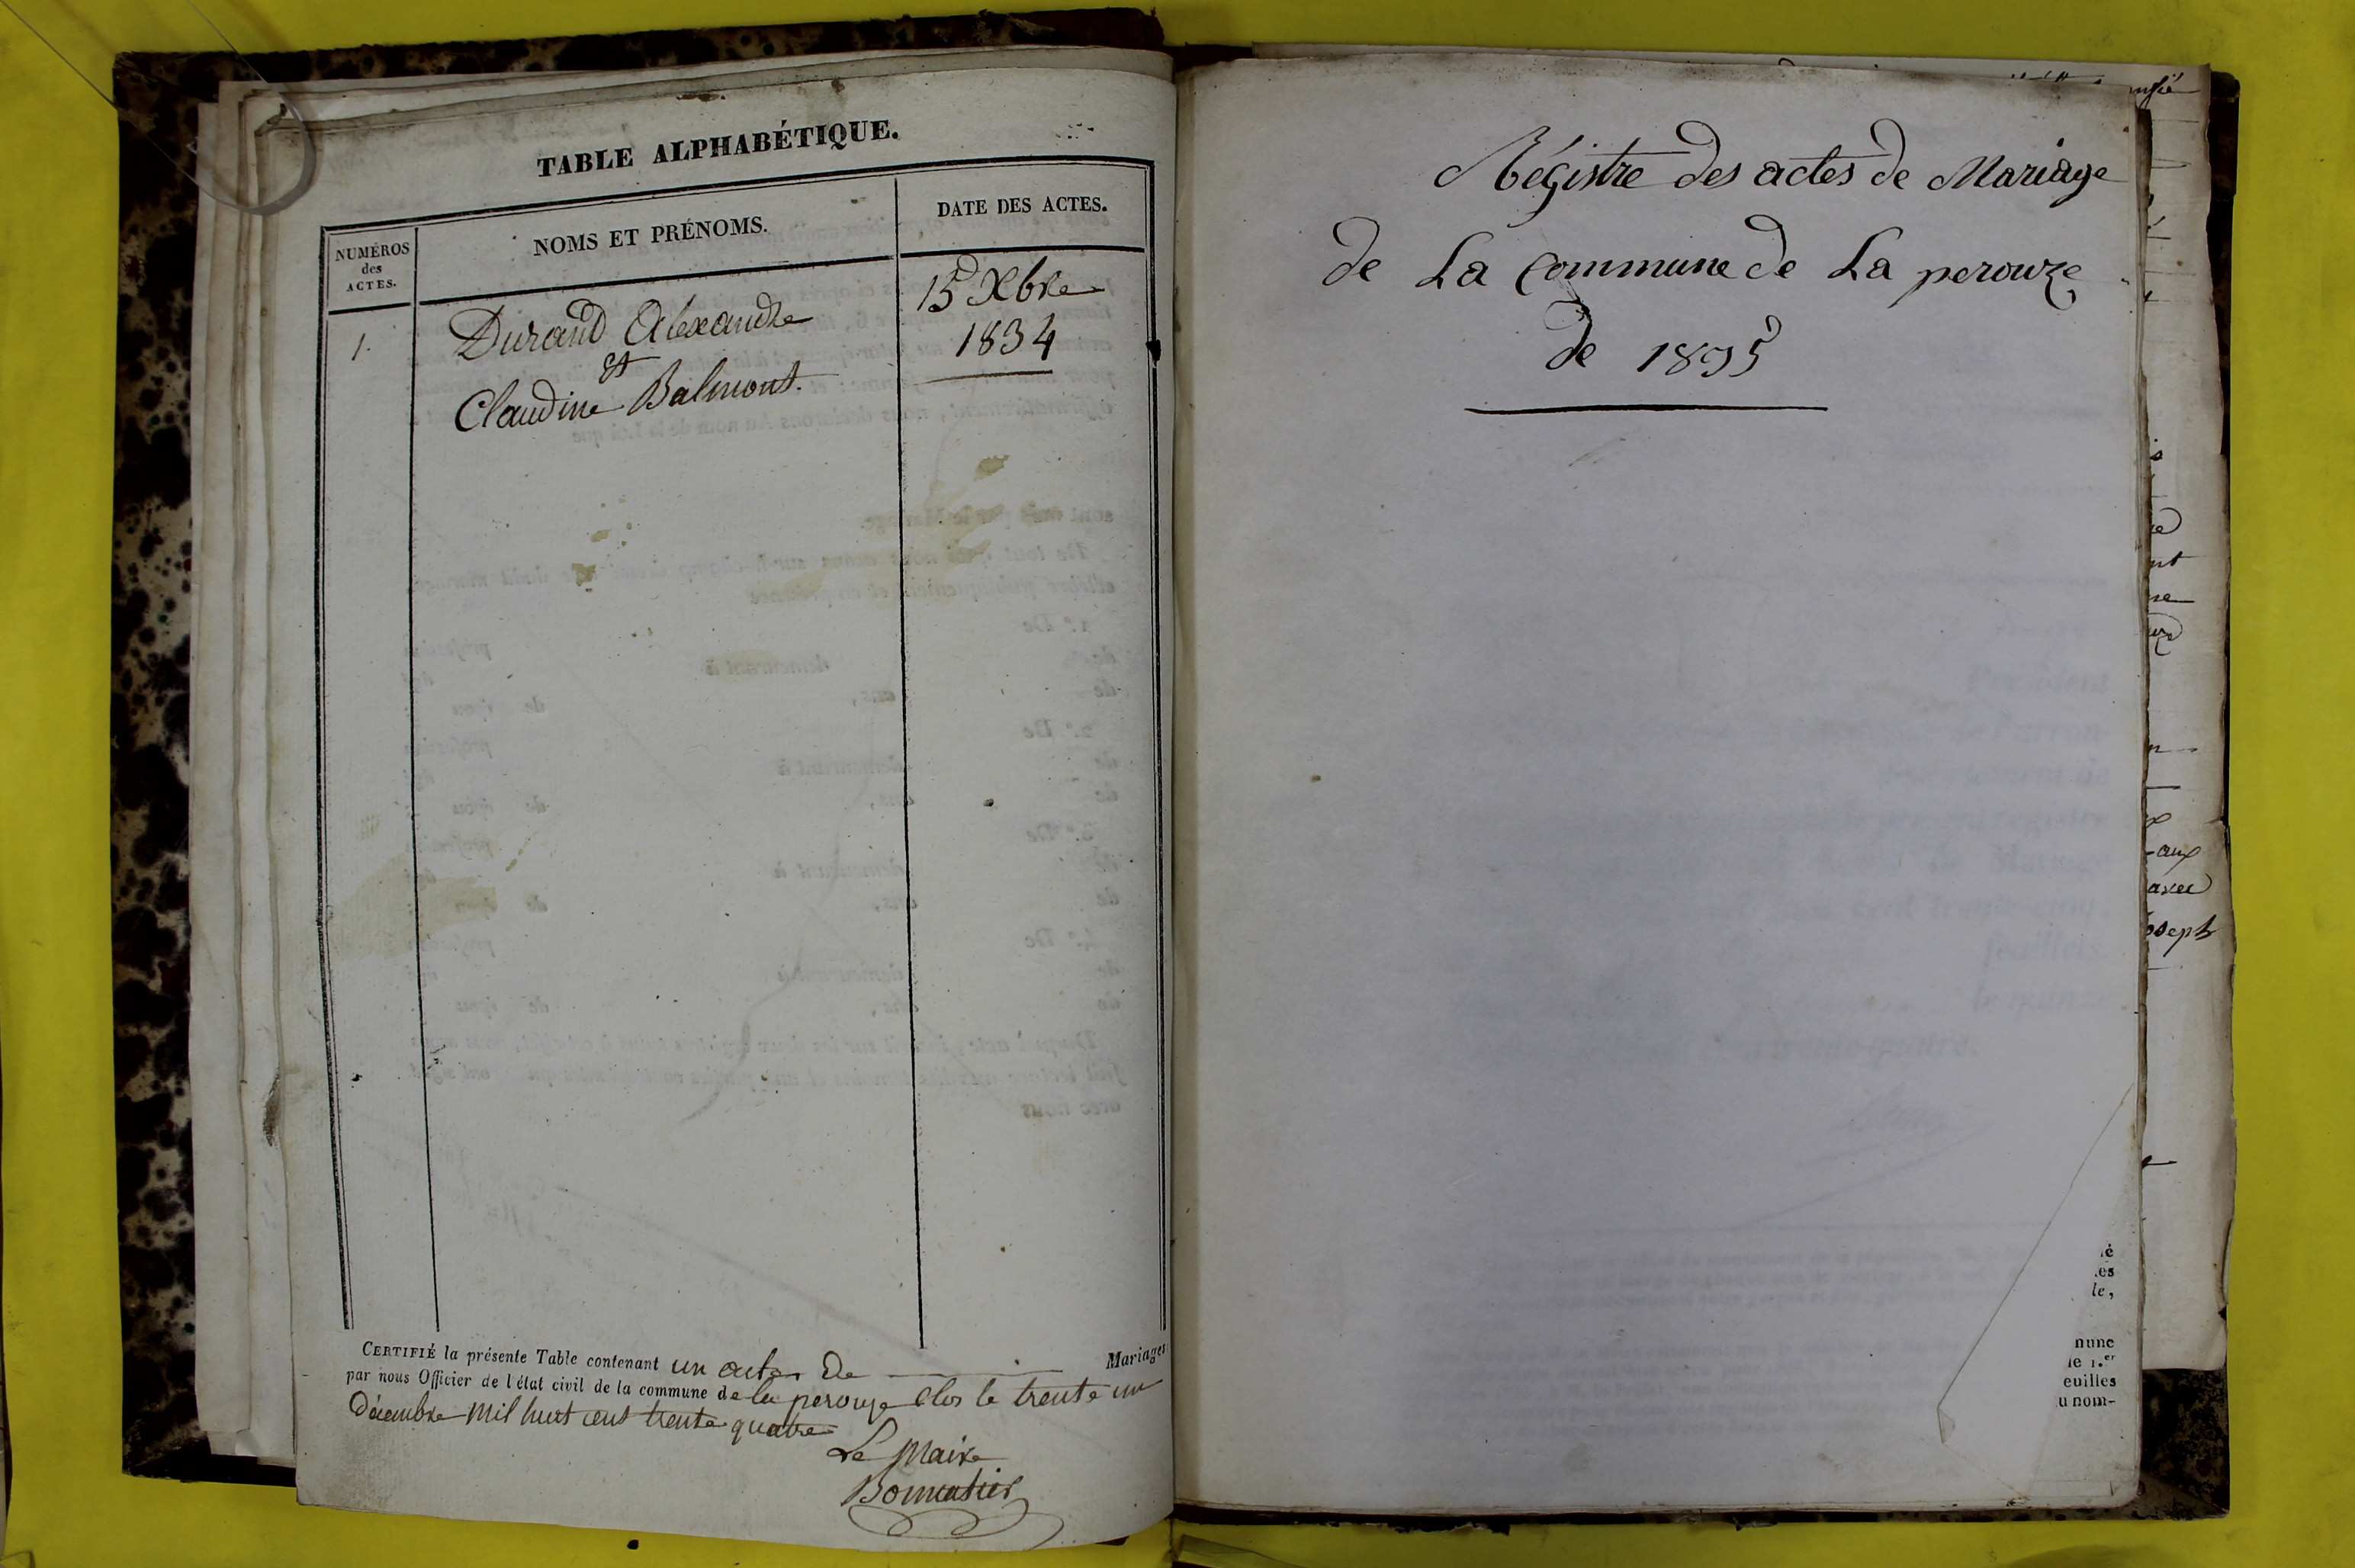 TABLE ALPHABÉTIQUE.
NUMÉROS
des
ACTES.
NOMS ET PRÉNOMS.
DATE DES ACTES.
1.
Durand Alexandre
et
Claudine Balmont.
15 Xbre
1834
CERTIFIÉ la présente Table contenant un actes de Mariages
par nous Officier de l'état civil de la commune de la perouze Clos le trente un
Décembre mil huit cent trente quatre
Le Maire
Régistre des actes de Mariage
de La Commune de La perouze
de 1835
aux
avec
oseph
é
es
le,
nune
le 1.er
euilles
u nom-